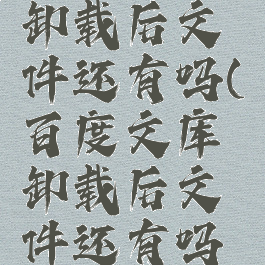 卸载后文
件还有吗(
百度文库
卸载后文
件还有吗